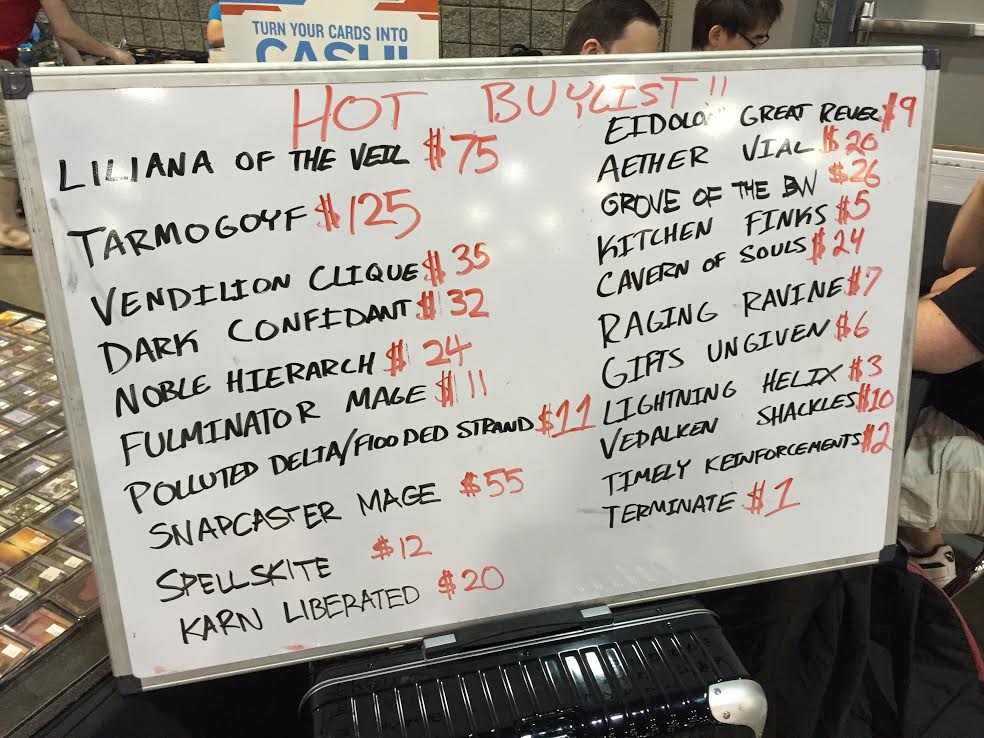 TURN YOUR CARDS INTO
CASH!
HOT BUYLIST!!
LILIANA OF THE VEIL $75
TARMOGOYF $125
VENDILION CLIQUE $35
DARK CONFIDANT $32
NOBLE HIERARCH $24
FULMINATOR MAGE $11
POLLUTED DELTA/FLOODED STRAND $11
SNAPCASTER MAGE $55
SPELLSKITE $12
KARN LIBERATED $20
EIDOLO GREAT REVEL $9
AETHER VIAL $20
GROVE OF THE BW $26
KITCHEN FINKS $5
CAVERN OF SOULS $24
RAGING RAVINE $7
GIFTS UNGIVEN $6
LIGHTNING HELIX $3
VEDALKEN SHACKLES $10
TIMELY REINFORCEMENTS $2
TERMINATE $1